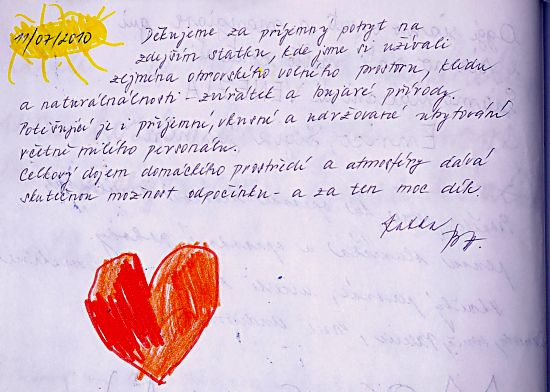 11/07/2010 Děkujeme za příjemný pobyt na
zdejším statku, kde jsme si užívali
zejména otmorského volného prostoru, klidu
a naturálnálnosti - zvířátek a bujaré přírody.
Potěšující je i příjemné, vkusné a udržované ubytování
včetně milého personálu.
Celkový dojem domáckého prostředí a atmosféry dává
skutečnou možnost odpočinku - a za ten moc dík.